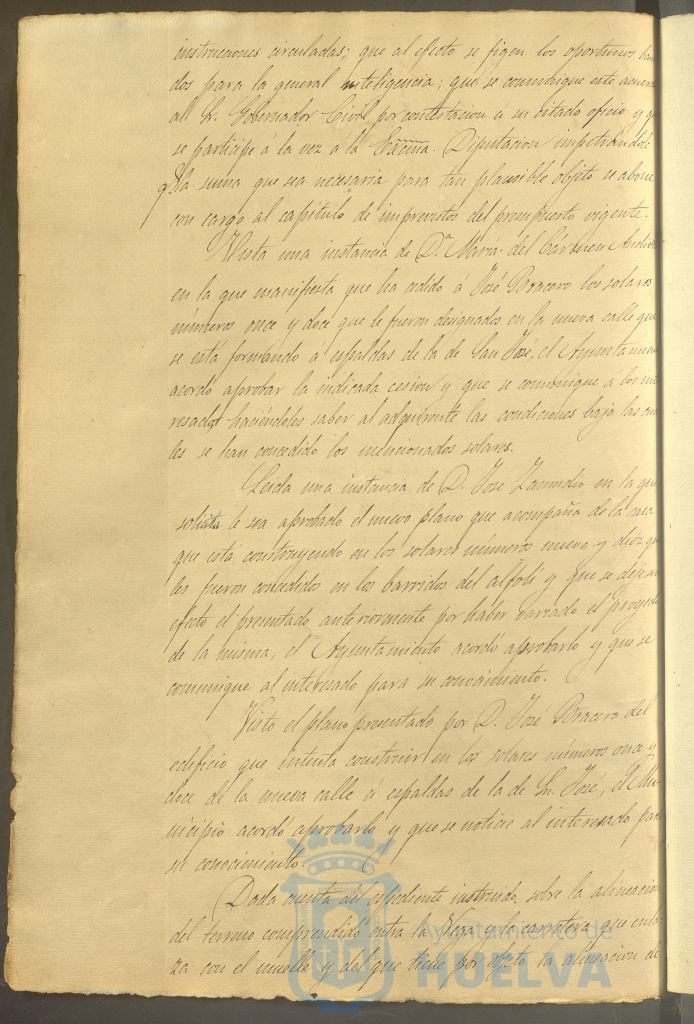 instrucciones circuladas; que al efecto se figen los oportunos ban
dos para la general inteligencia; que se comunique este acuer
al Sr. Gobernador Civil por contestacion á su citado oficio y q
se participe á la vez á la Excma. Diputacion impetrandole
q. la suma que sea necesaria para tan plausible objeto se abone
con cargo al capitulo de imprevistos del presupuesto vigente.
Vista una instancia de D.ª Maria del Cármen
en la que manifiesta que ha cedido á José Bracero los solares
números once y doce que le fueron designados en la nueva calle que
se está formando á espaldas de la de San José, el Ayuntamien
acordó aprobar la indicada cesion y que se comunique á los in
resados haciéndoles saber al adquirente las condiciones bajo las cua
les se han concedido los mencionados solares.
Leida una instancia de D. José Zamudio en la que
solicita le sea aprobado el nuevo plano que acompaña de la casa
que está construyendo en los solares números nueve y diez q
les fueron concedidos en los barridos del alfolí y que se deje sin
efecto el presentado anteriormente por haber variado el proyecto
de la misma, el Ayuntamiento acordó aprobarlo y que se
comunique al interesado para su conocimiento.
Visto el plano presentado por D. José Bracero del
edificio que intenta construir en los solares números once y
doce de la nueva calle á espaldas de la de Sn. José, el Mu-
nicipio acordó aprobarlo y que se noticie al interesado para
su conocimiento.
Dada cuenta del espediente instruido sobre la alineacion
del terreno comprendido entre la Vega y la carretera que enla
za con el muelle y del que tiene por objeto la alineacion de
Ayuntamiento de
HUELVA